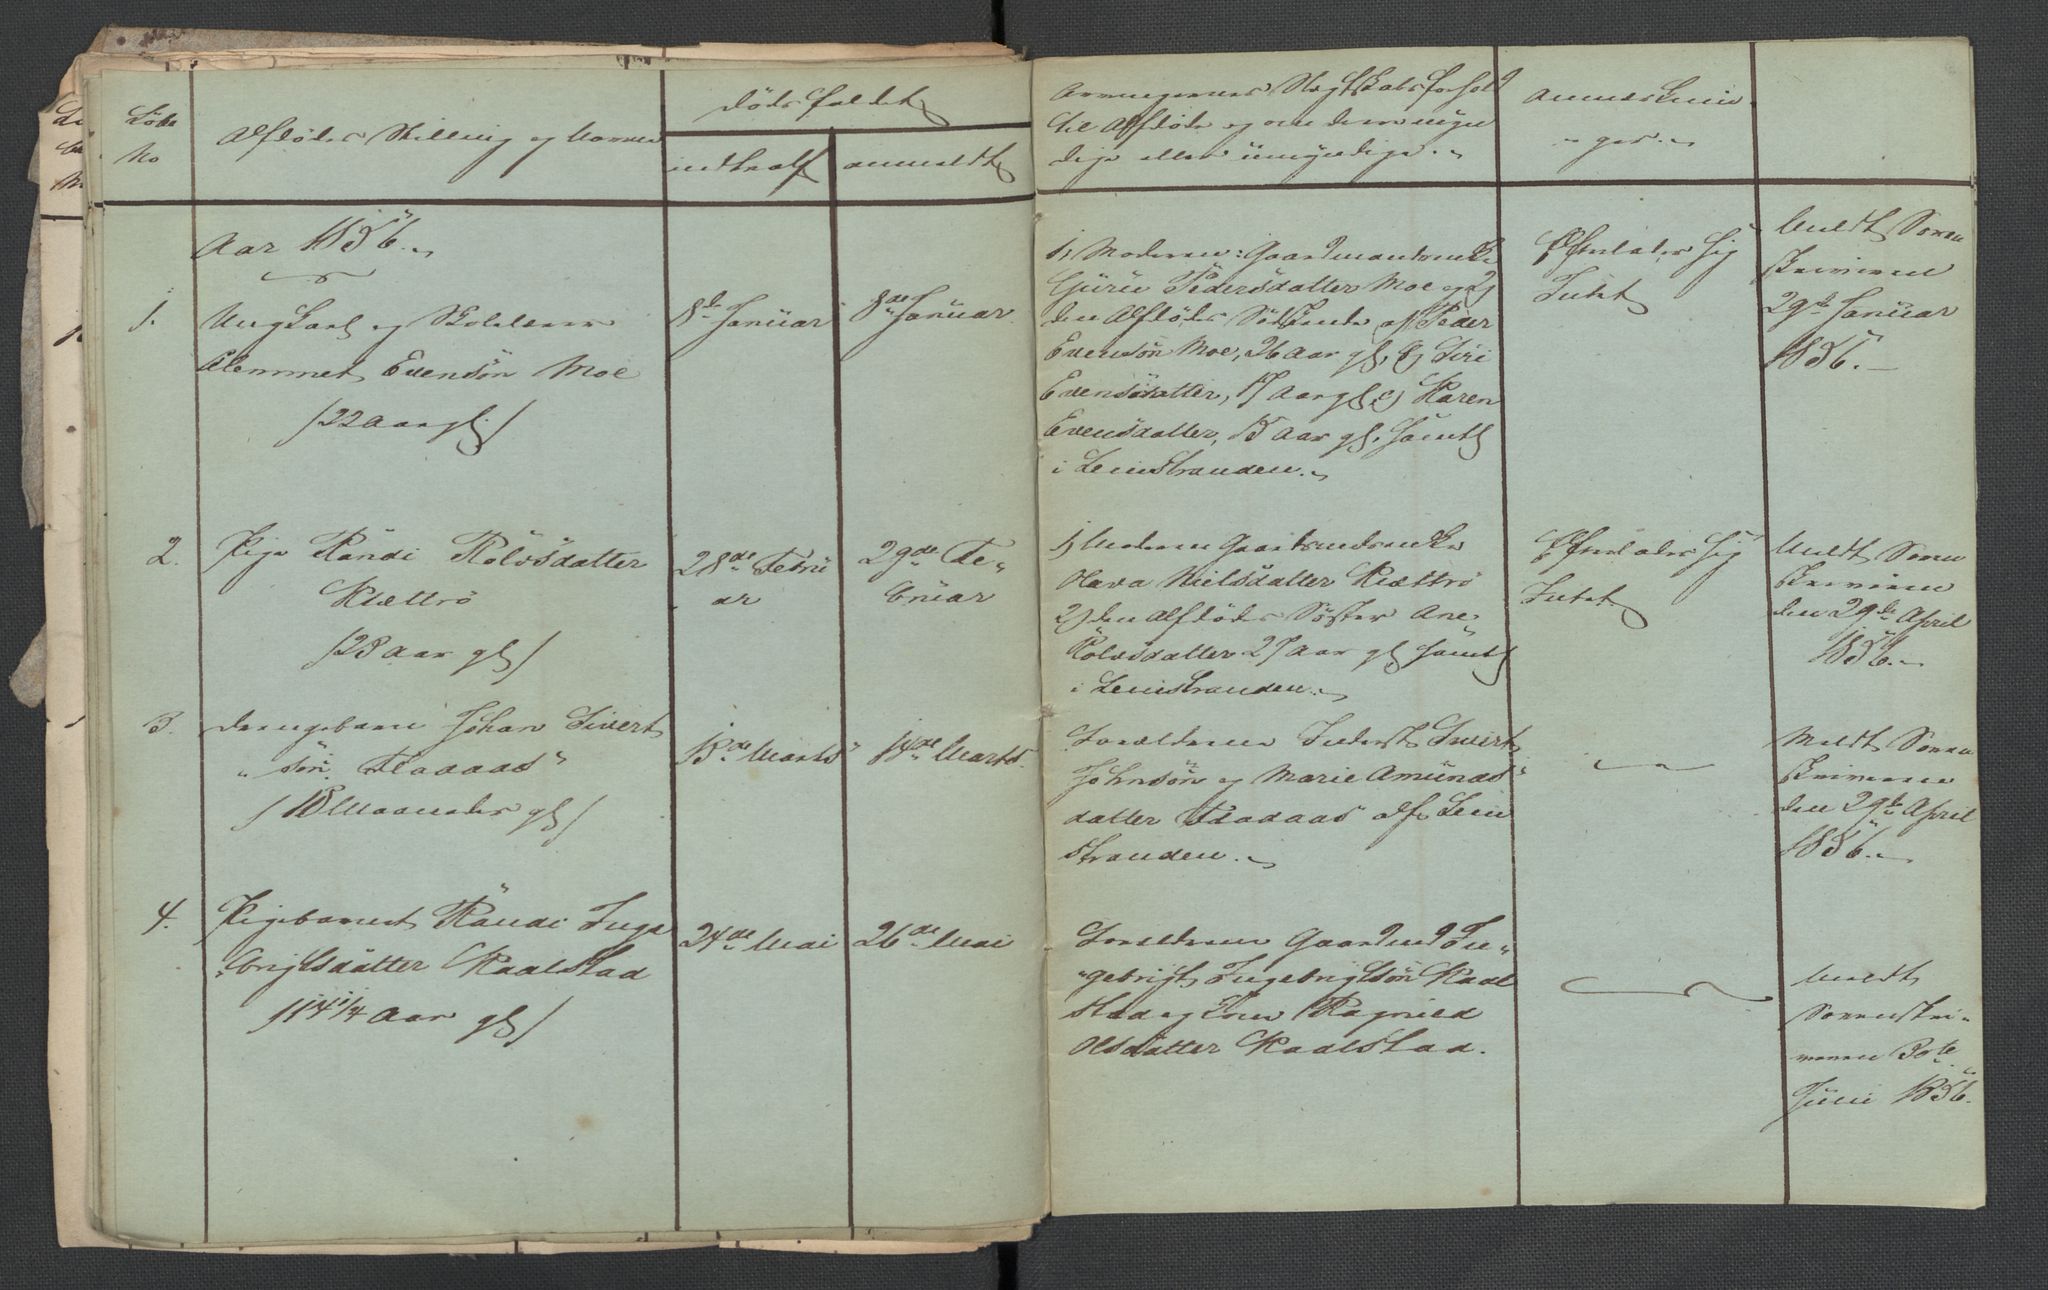 Löbe
No
Afdödes Stilling og Navn
Dödsfaldet
indtraf
anmeldt
Arvingernes Slegtskabsforhold
til Afdöde og om de ere myn
dige eller ümyndige.
Anmærknin
ger.
Aar 1856.
1.
Ungkarl og Skolelærer
Clemmet Evensön Moe
/22 Aar gl/
8de Januar
8de Januar
1, Moderen: Gaardmandsenke
Gürü Pedersdatter Moe og 2,
den Afdödes Södskende a, Peder
Evensön Moe, 26 Aar gl, b, Siri
Evensdatter, 17 Aar gl, c, Karen
Evensdatter, 15 Aar gl, samtl
i Leinstranden.
Efterlader sig
Intet
Meldt Soren
skriveren
29de Januar
1856.
2.
Pige Randi Rolvsdatter
Klættrö
/23 Aar gl/
28de Febru
ar
29de Fe
bruar
1, Moderen Gaardmandsenke
Nielsdatter Klættrö
2, den Afdödes Söster Ane
Rolvsdatter 27 Aar gl samtl
i Leinstranden.
Efterlader sig
Intet
Meldt Soren
skriveren
den 29de April
1856.
3.
Drengebarn Johan Sivert
sön
/18 Maaneder gl/
13de Marts
14de Marts
Foreldrene Inderst Sivert
Johnsön og Marie Amunds
datter af Lein
stranden.
Meldt Soren
skriveren
den 29de April
1856.
4.
Pigebarnet Randi Inge
brigtsdatter Kaalstad
/14 1/4 Aar gl/
24de Mai
26de Mai
Foreldrene Gaardmd In
gebrigt Ingebrigtsön Kaal
stad og Kone Ragnild
Olsdatter Kaalstad.
Meldt
Sorenskri
veren 30te
Juni 1856.